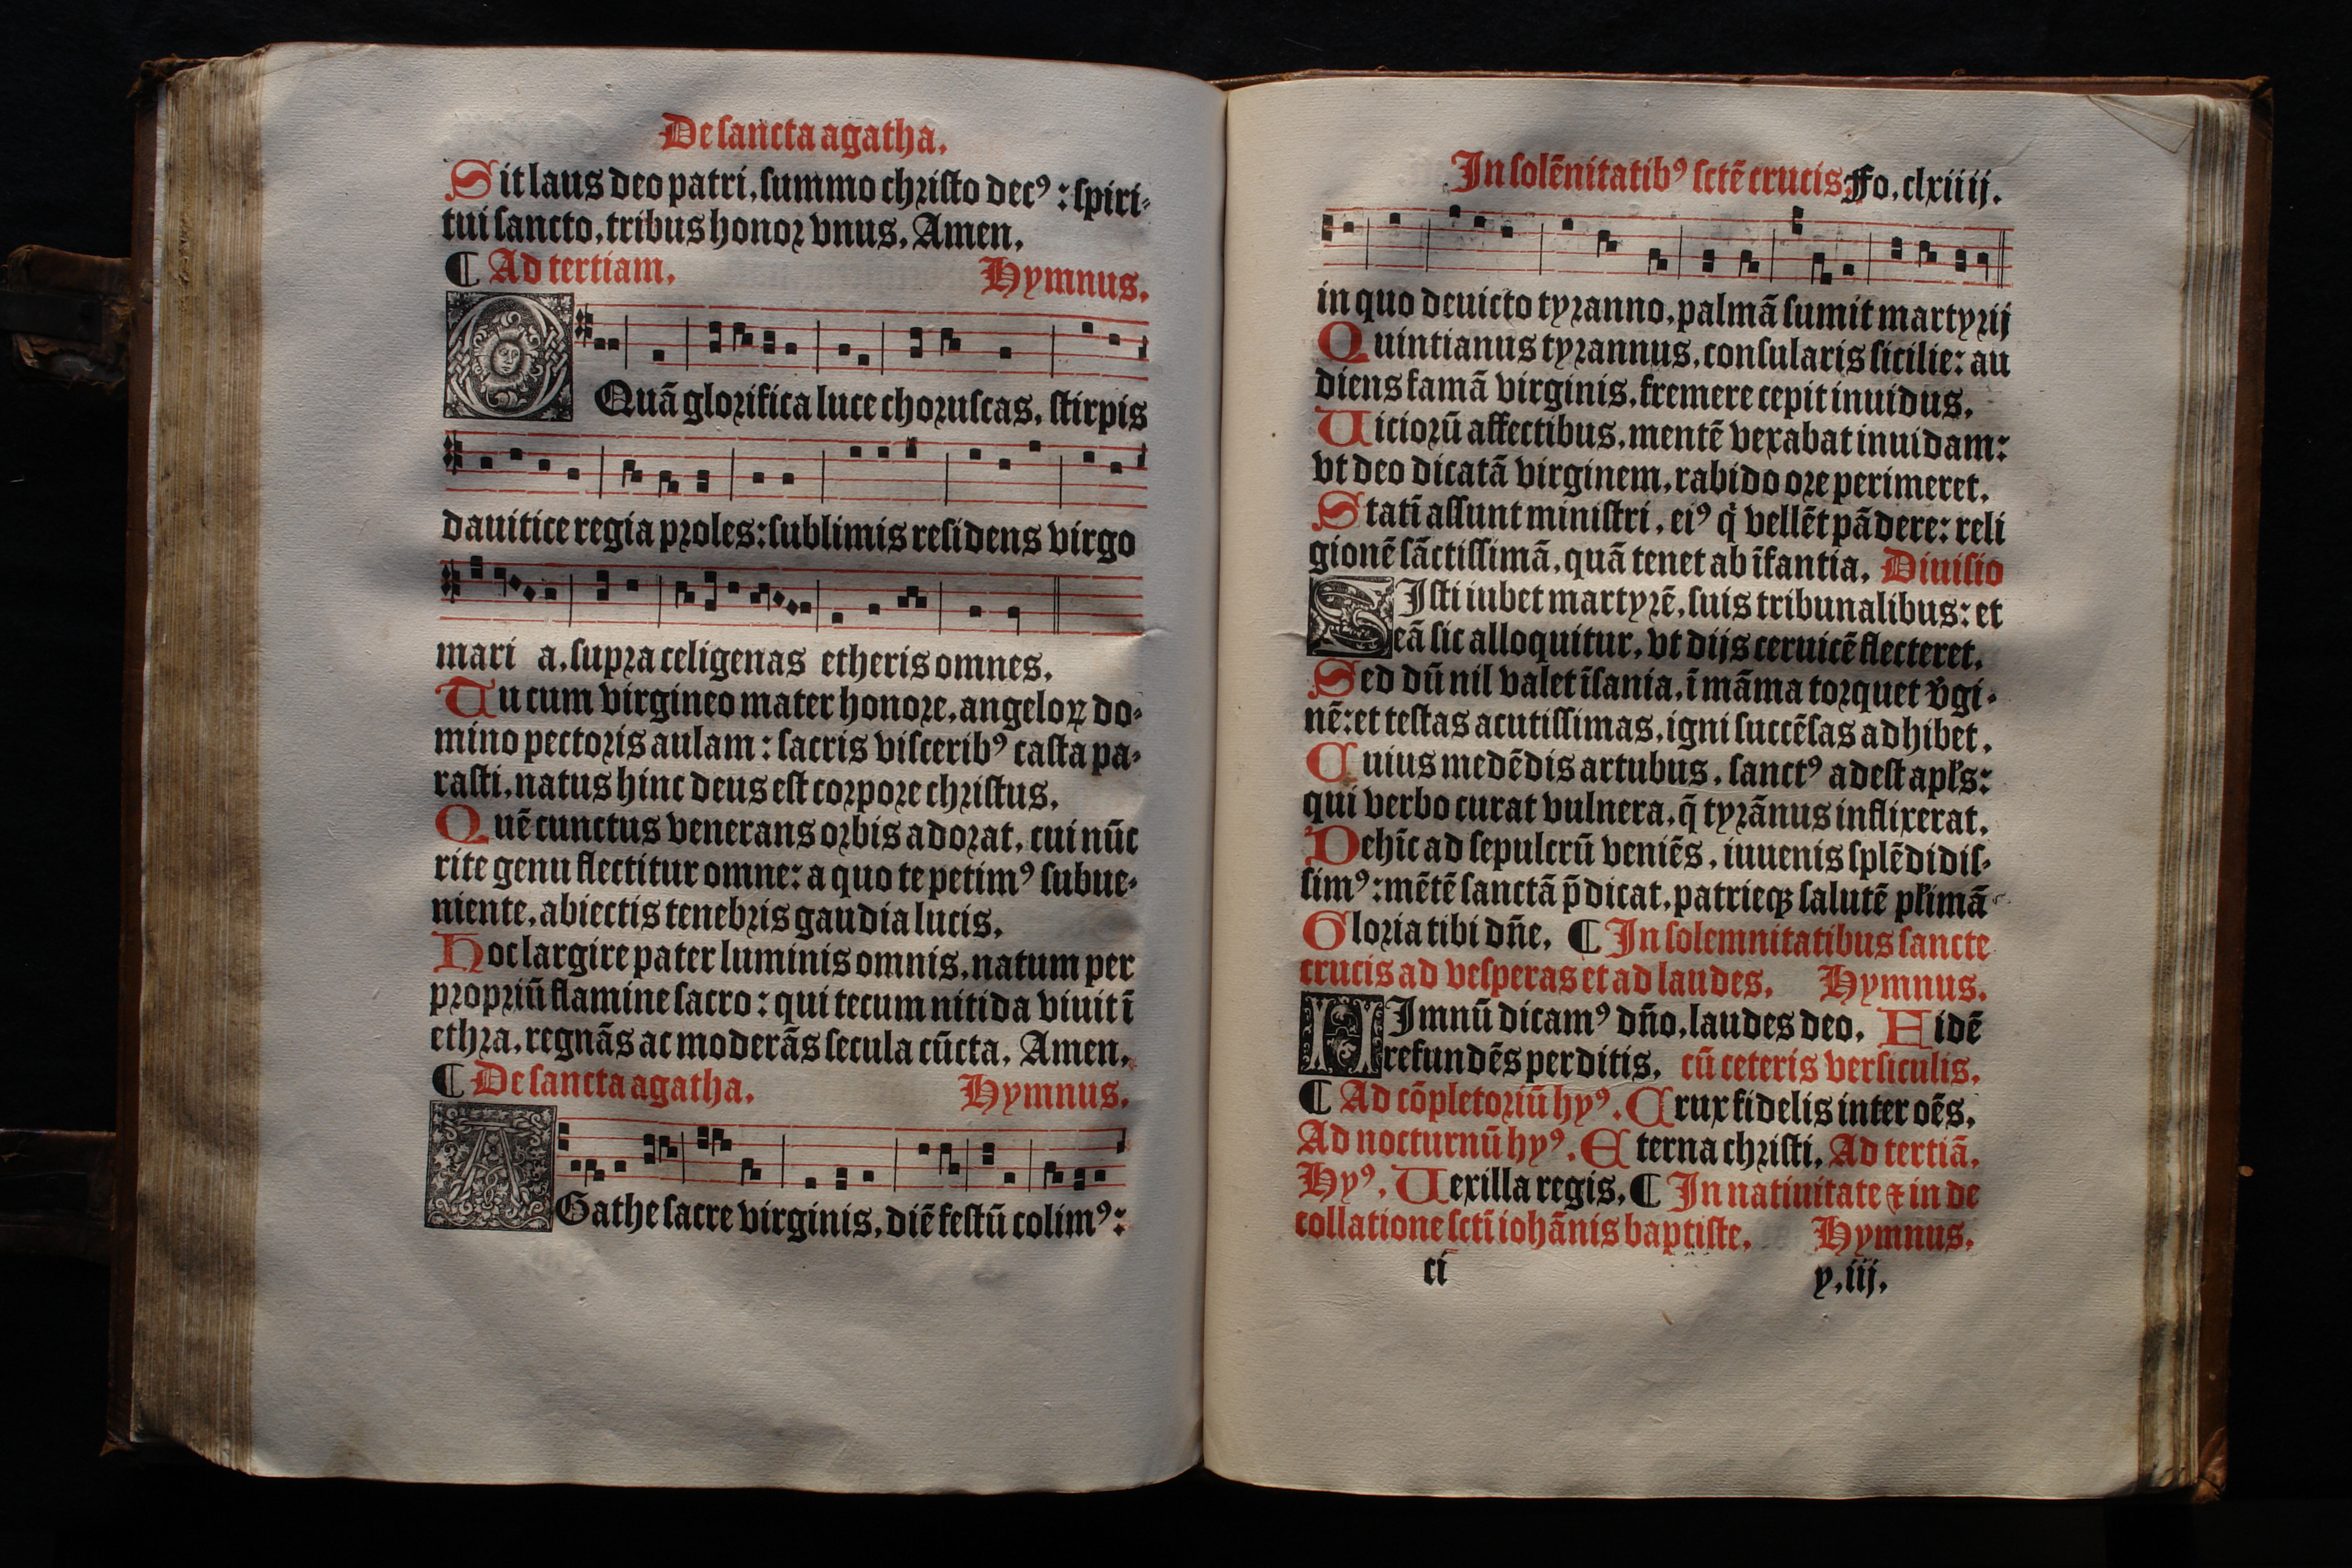 De sancta agatha.
Sit laus deo patri, summo christo decꝰ: spiri-
tui sancto, tribus honor vnus, Amen.
¶ Ad tertiam. Hymnus.
O Quā glorifica luce choruscas, stirpis
dauitice regia proles: sublimis residens virgo
mari a, supra celigenas etheris omnes.
Tu cum virgineo mater honore, angeloꝝ do-
mino pectoris aulam: sacris visceribꝰ casta pa-
rasti, natus hinc deus est corpore christus.
Quē cunctus venerans orbis adorat, cui nūc
rite genu flectitur omne: a quo te petimꝰ subue-
niente, abiectis tenebris gaudia lucis.
Hoc largire pater luminis omnis, natum per
propriū flamine sacro: qui tecum nitida viuit ī
ethra, regnās ac moderās secula cūcta, Amen.
¶ De sancta agatha. Hymnus.
AGathe sacre virginis, diē festū colimꝰ:
In solēnitatibꝰ sctē crucis. Fo. clxiiij.
in quo deuicto tyranno, palmā sumit martyrij
Quintianus tyrannus, consularis sicilie: au
diens famā virginis, fremere cepit inuidus.
Uiciorū affectibus, mentē vexabat inuidam:
vt deo dicatā virginem, rabido ore perimeret.
Statī assunt ministri, eiꝰ q̇ vellēt pādere: reli
gionē sāctissimā, quā tenet ab īfantia. Diuisio
SIsti iubet martyrē, suis tribunalibus: et
eā sic alloquitur, vt dijs ceruicē flecteret.
Sed dū nil valet īsania, ī māma torquet v̄gi-
nē: et testas acutissimas, igni succēsas adhibet.
Cuius medēdis artubus, sanctꝰ adest apl's:
qui verbo curat vulnera, q̄ tyrānus inflixerat.
Dehīc ad sepulcrū veniēs, iuuenis splēdidis-
simꝰ: mētē sanctā p̄dicat, patrieqꝫ salutē pl'imā
Gloria tibi dn̄e. ¶ In solemnitatibus sancte
crucis ad vesperas et ad laudes. Hymnus.
HImnū dicamꝰ dn̄o, laudes deo. Fidē
refundēs perditis. cū ceteris versiculis.
¶ Ad cōpletoriū hyꝰ. Crux fidelis inter oēs.
Ad nocturnū hyꝰ. Eterna christi. Ad tertiā.
Hyꝰ. Uexilla regis. ¶ In natiuitate ⁊ in de
collatione sctī iohānis baptiste. Hymnus.
ci y.iij.